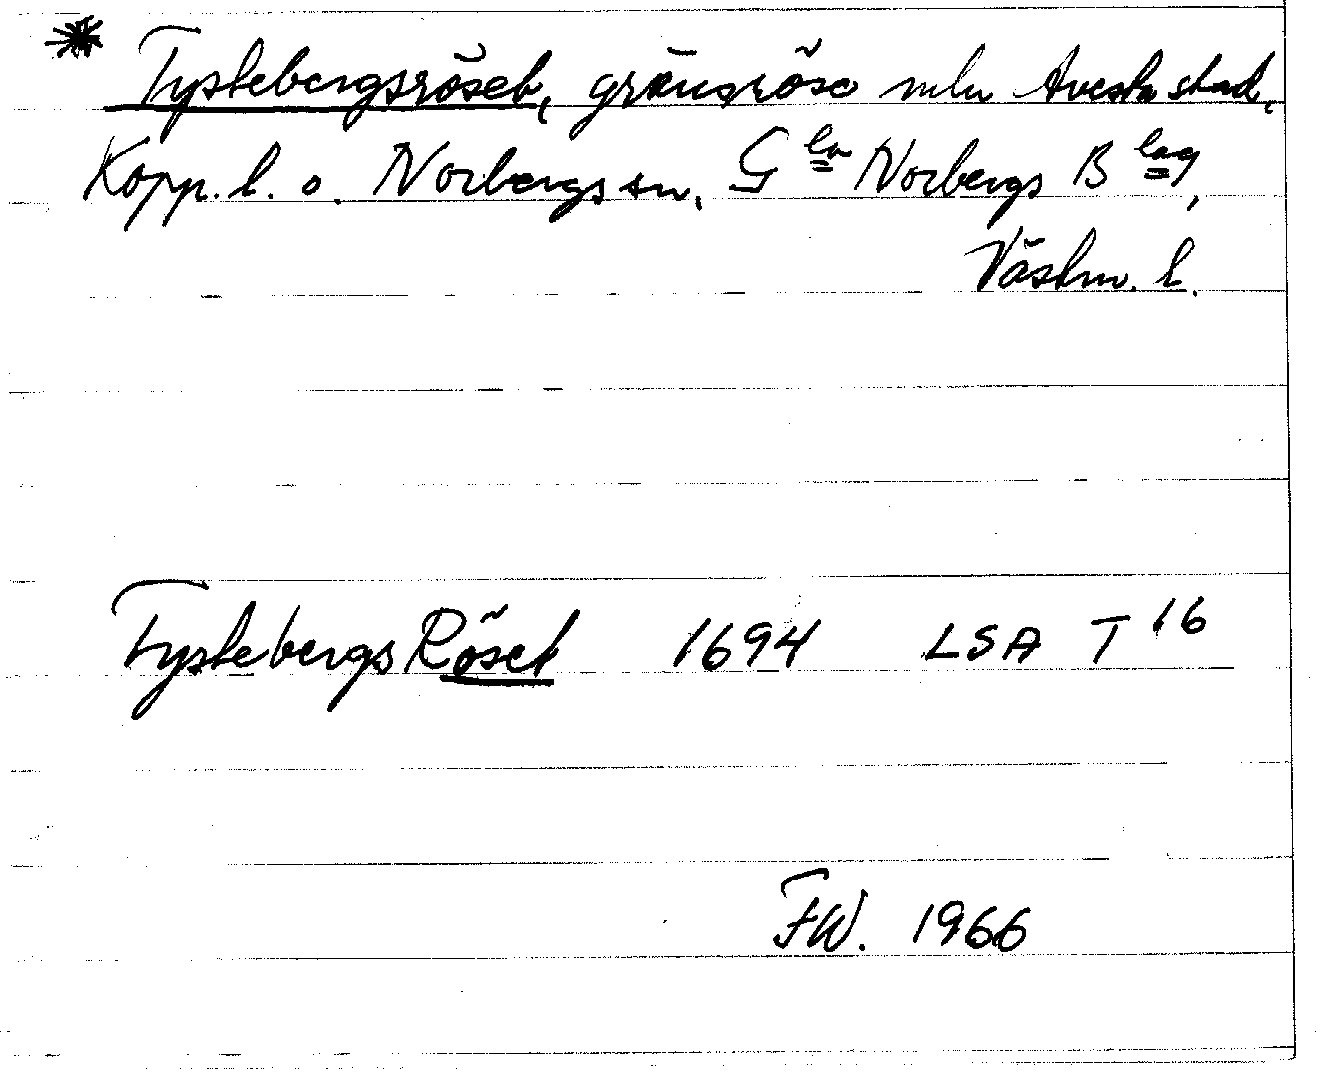 * Tystebergsröset, gränsröse mln Avesta stad,
Kopp. l. o. Norbergs sn, Gla Norbergs Blag,
Västm. l.
Tystebergs Röset 1694 LSA T 16
FW. 1966